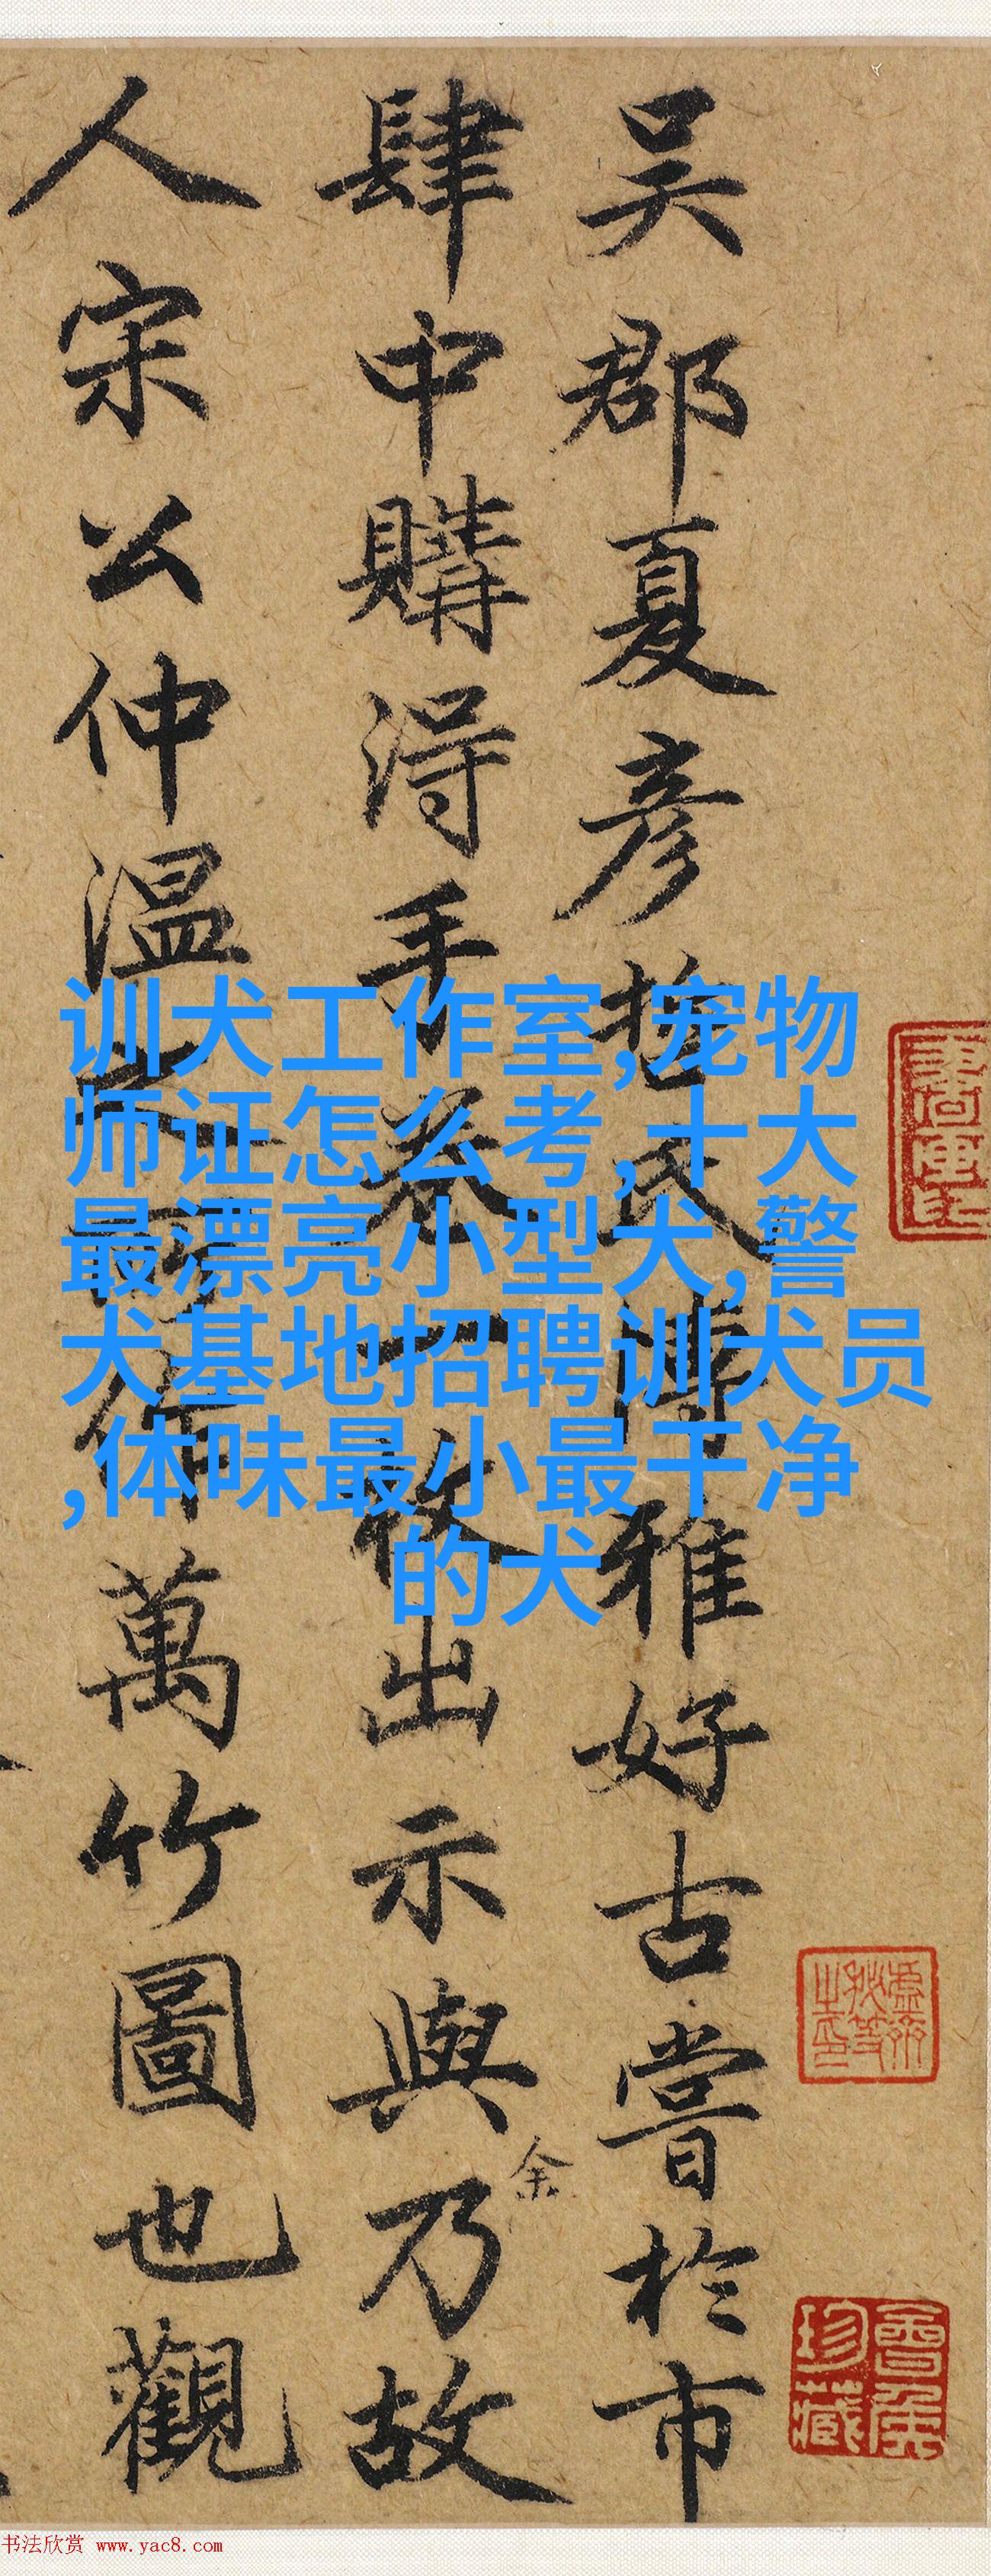 吴郡夏彦拒民博雅好古嘗於市
肆中購得手卷一枚出示與乃故
余
人宋公仲温之所作萬竹圖也觀
训犬工作室,宠物
师证怎么考,十大
最漂亮小型犬,警
犬基地招聘训犬员
,体味最小最干净
的犬
珍藏
书法欣赏 www.yac8.com